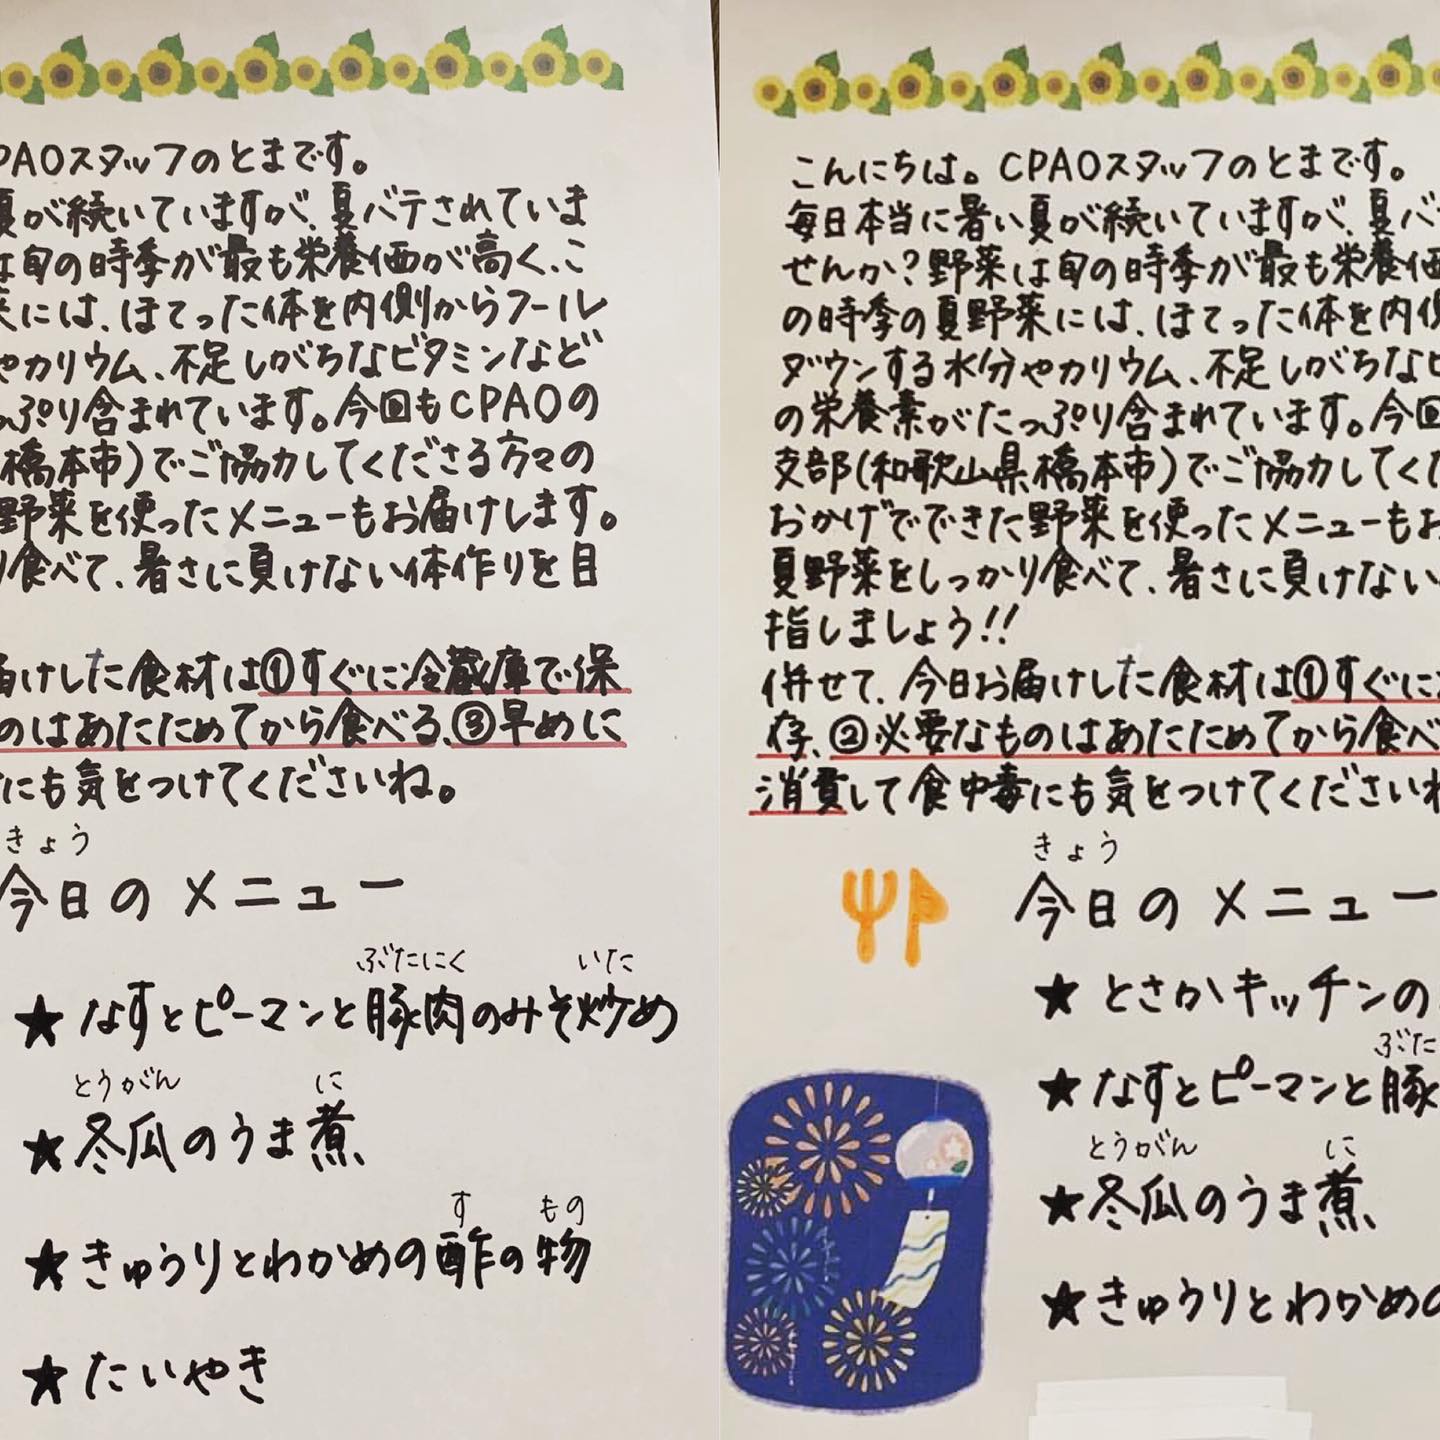 PAOスタッフのとまです。
夏が続いていますが、夏バテされていま
は旬の時季が最も栄養価が高く、こ
菜には、ほてった体を内側からクール
やカリウム、不足しがちなビタミンなど
っぷり含まれています。今回もCPAOの
橋本市)でご協力してくださる方々の
野菜を使ったメニューもお届けします。
り食べて、暑さに負けない体作りを目
届けした食材は①すぐに冷蔵庫で保
のはあたためてから食べる、③早めに
にも気をつけてくださいね。
きょう
今日のメニュー
ぶたにく いた
★なすとピーマンと豚肉のみそ炒め
とうがん に
★冬瓜のうま煮
す もの
★きゅうりとわかめの酢の物
★たいやき
こんにちは。CPAOスタッフのとまです。
毎日本当に暑い夏が続いていますが、夏バ
せんか?野菜は旬の時季が最も栄養価
の時季の夏野菜には、ほてった体を内側
ダウンする水分やカリウム、不足しがちなビ
の栄養素がたっぷり含まれています。今回
支部(和歌山県橋本市)でご協力してくだ
おかげでできた野菜を使ったメニューもお
夏野菜をしっかり食べて、暑さに負けない
指しましょう!!
併せて、今日お届けした食材は①すぐに
存、②必要なものはあたためてから食べ
消費して食中毒にも気をつけてくださいね
きょう
今日のメニュー
★とさかキッチンの
ぶた
★なすとピーマンと豚
とうがん に
★冬瓜のうま煮
★きゅうりとわかめの